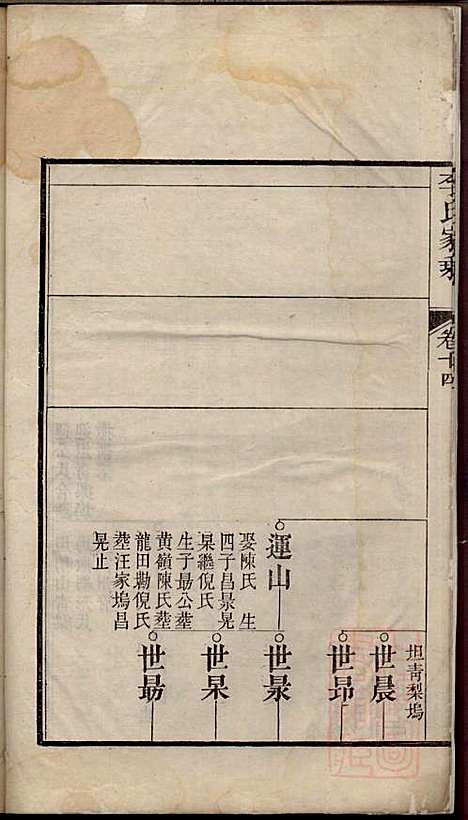 李氏家乘
卷十四
坦青梨塢
世晨
世昂
運山
娶陳氏 生
四子昌景晃
杲繼倪氏
生子勗公塟
黄嶺陳氏塟
龍田勘倪氏
塟汪家塢昌
晃止
世景
世杲
世勗